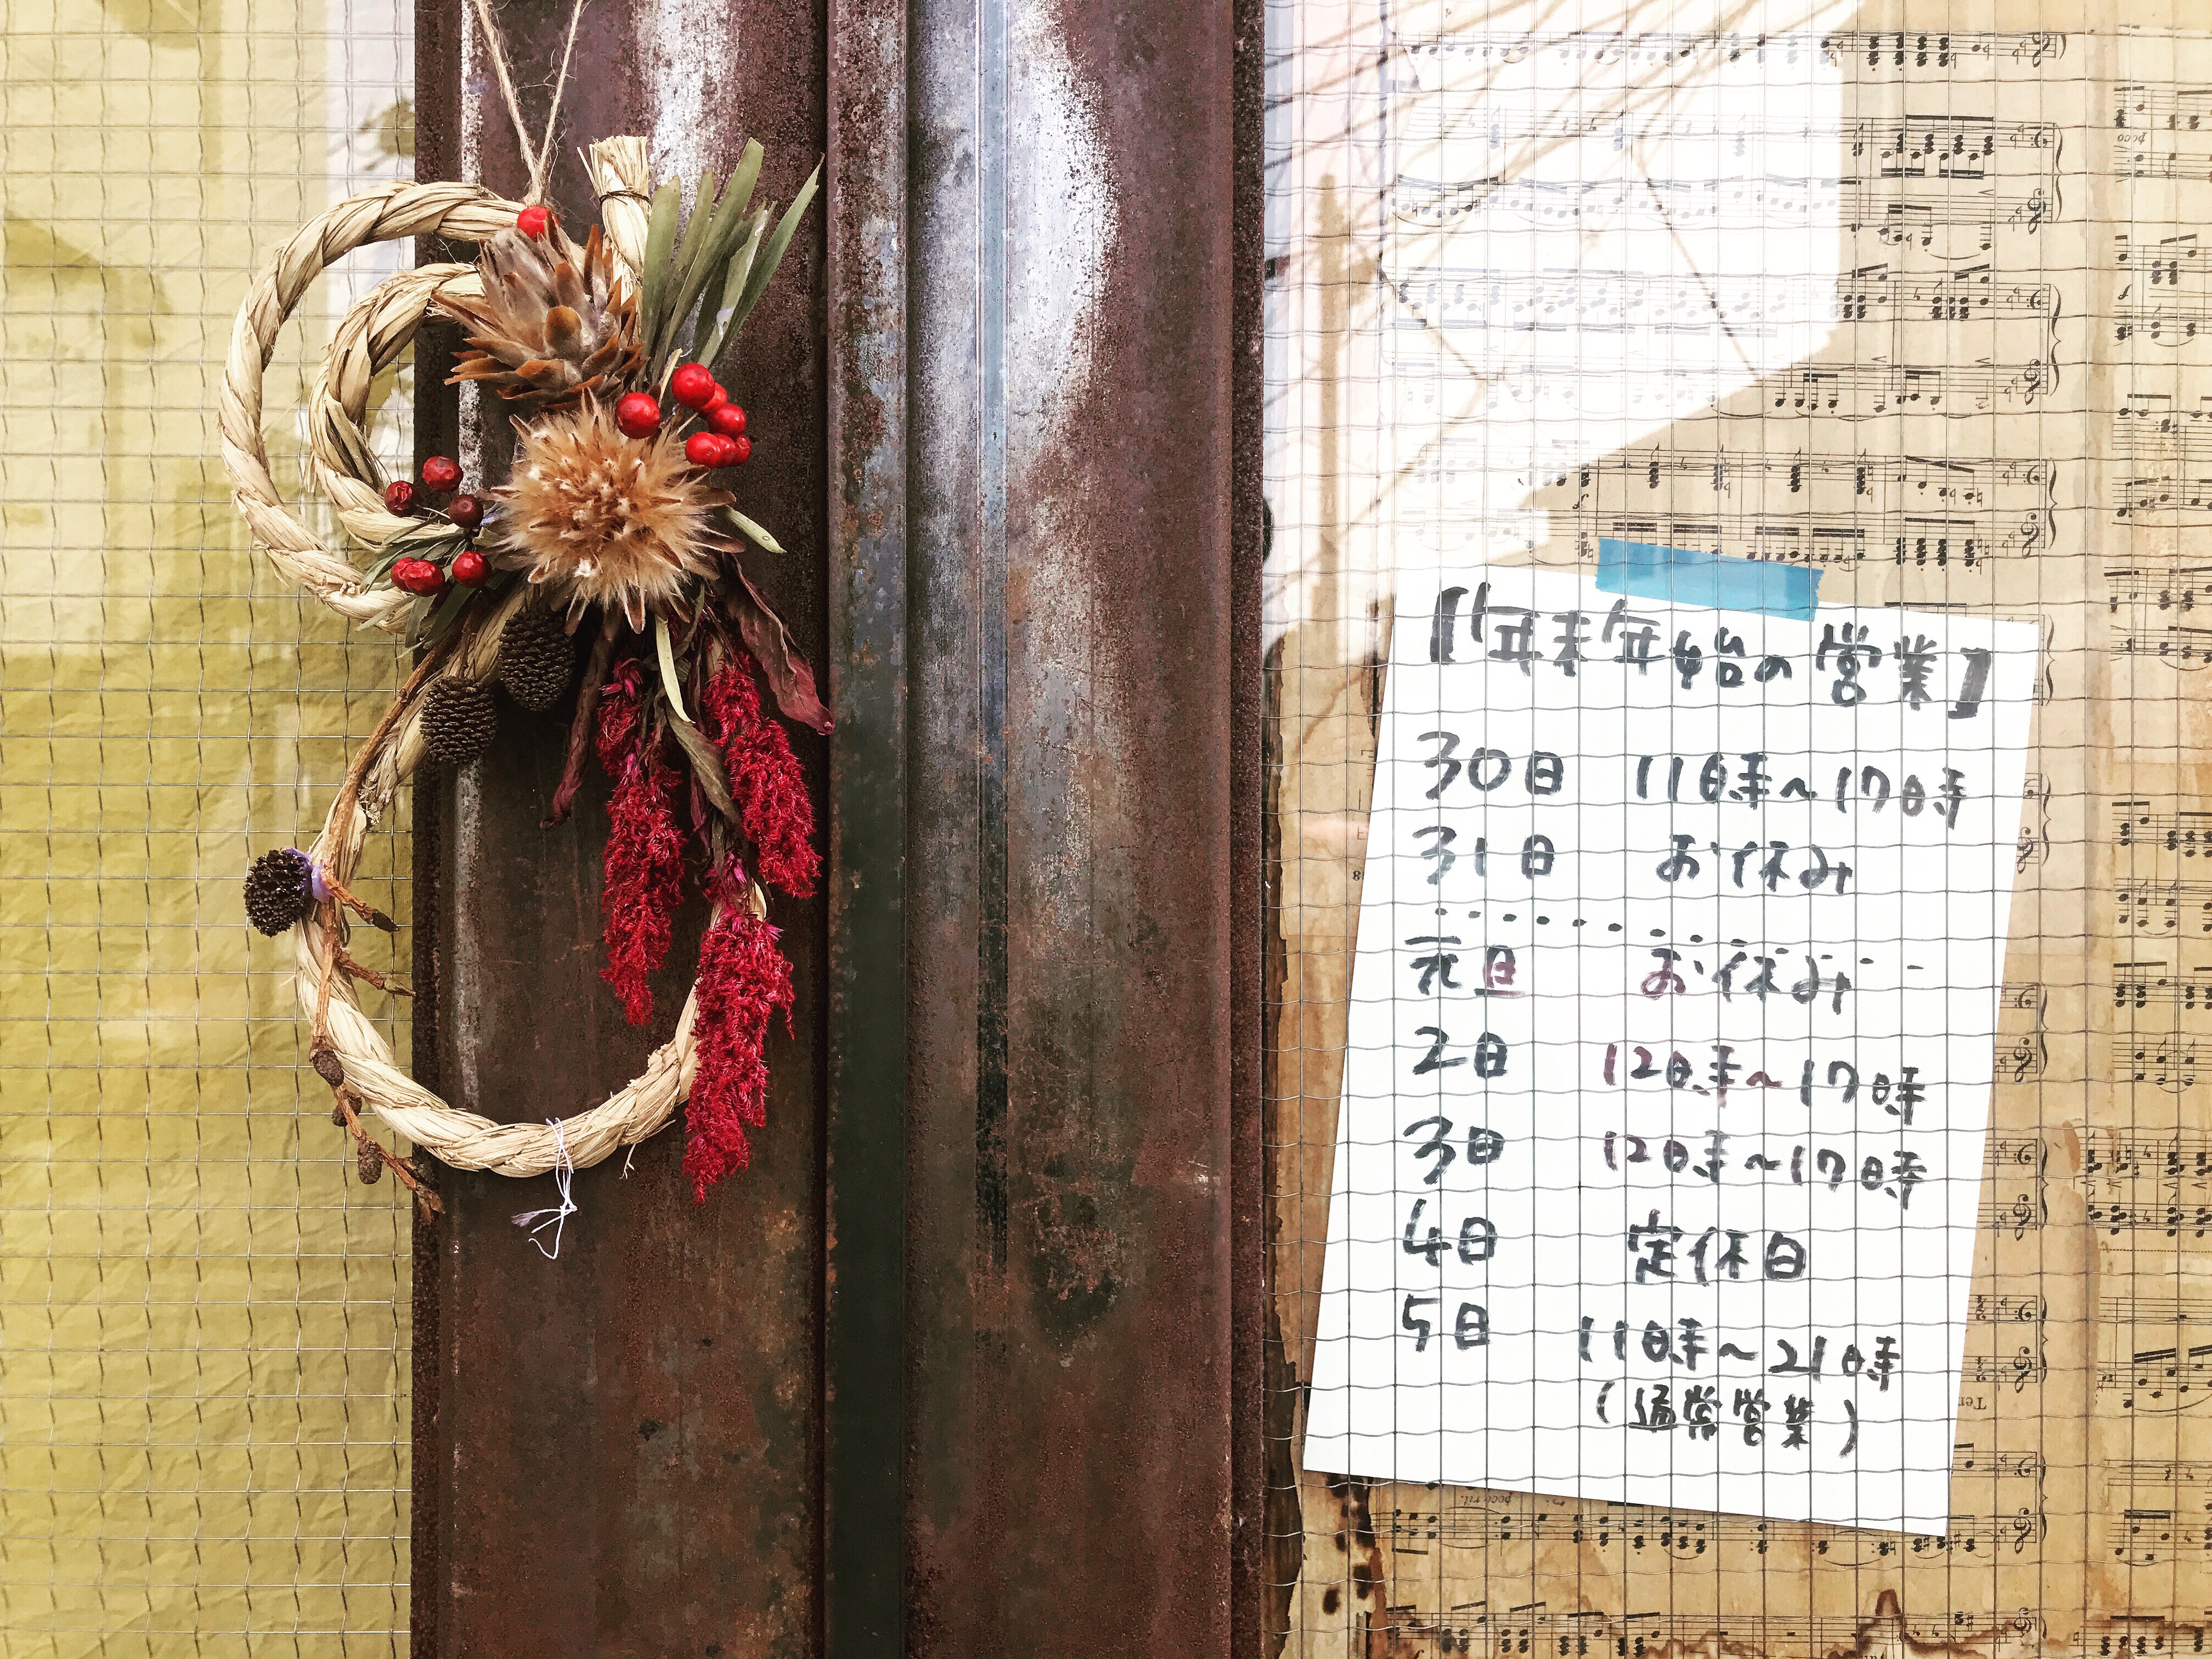 【年末年始の営業】
30日 11時～17時
31日 お休み
元旦 お休み
2日 12時～17時
3日 12時～17時
4日 定休日
5日 11時～21時
(通常営業)
poco
poco rit.